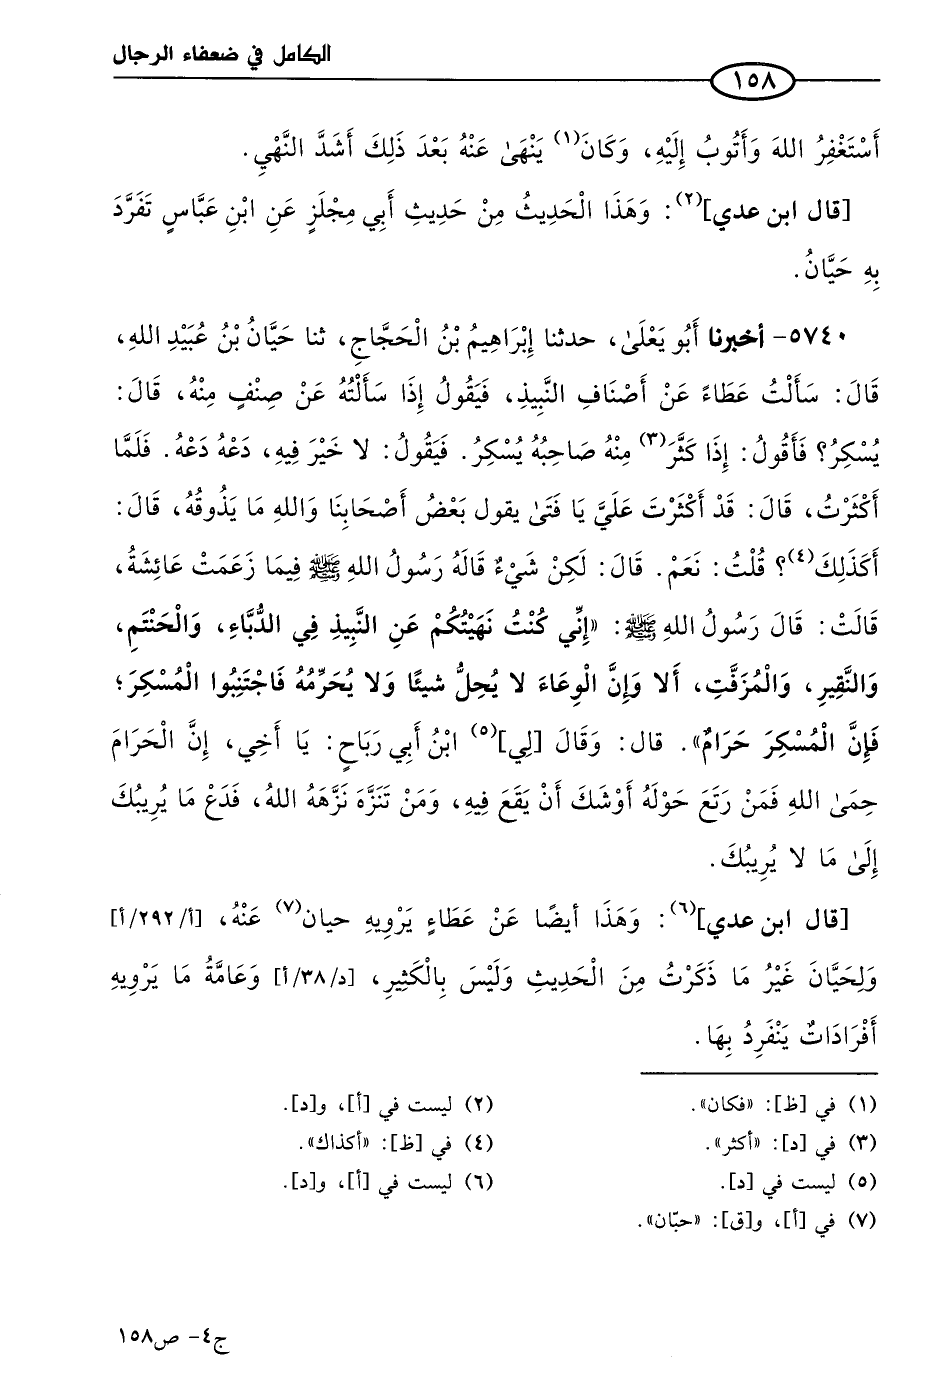 الكامل في ضعفاء الرجال
١٥٨
أَسْتَغْفِرُ اللهَ وَأَتُوبُ إِلَيْهِ، وَكَانَ(١) يَنْهَىٰ عَنْهُ بَعْدَ ذَلِكَ أَشَدَّ النَّهْيِ.
[قال ابن عدي](٢): وَهَذَا الْحَدِيثُ مِنْ حَدِيثِ أَبِي مِجْلَزٍ عَنِ ابْنِ عَبَّاسٍ تَفَرَّدَ
بِهِ حَيَّانُ.
٥٧٤٠- أخبرنا أَبُو يَعْلَىٰ، حدثنا إِبْرَاهِيمُ بْنُ الْحَجَّاجِ، ثنا حَيَّانُ بْنُ عُبَيْدِ اللهِ،
قَالَ: سَأَلْتُ عَطَاءً عَنْ أَصْنَافِ النَّبِيذِ، فَيَقُولُ إِذَا سَأَلْتُهُ عَنْ صِنْفٍ مِنْهُ، قَالَ:
يُسْكِرُ؟ فَأَقُولُ: إِذَا كَثَّرَ(٣) مِنْهُ صَاحِبُهُ يُسْكِرُ. فَيَقُولُ: لا خَيْرَ فِيهِ، دَعْهُ دَعْهُ. فَلَمَّا
أَكْثَرْتُ، قَالَ: قَدْ أَكْثَرْتَ عَلَيَّ يَا فَتَىٰ يقول بَعْضُ أَصْحَابِنَا وَاللهِ مَا يَذُوقُهُ، قَالَ:
أَكَذَلِكَ(٤)؟ قُلْتُ: نَعَمْ. قَالَ: لَكِنْ شَيْءٌ قَالَهُ رَسُولُ اللهِ ﷺ فِيمَا زَعَمَتْ عَائِشَةُ،
قَالَتْ: قَالَ رَسُولُ اللهِ ﷺ: «إِنِّي كُنْتُ نَهَيْتُكُمْ عَنِ النَّبِيذِ فِي الدُّبَّاءِ، وَالْحَنْتَمِ،
وَالنَّقِيرِ، وَالْمُزَفَّتِ، أَلا وَإِنَّ الْوِعَاءَ لا يُحِلُّ شيئًا وَلا يُحَرِّمُهُ فَاجْتَنِبُوا الْمُسْكِرَ؛
فَإِنَّ الْمُسْكِرَ حَرَامٌ». قال: وَقَالَ [لِي](٥) ابْنُ أَبِي رَبَاحٍ: يَا أَخِي، إِنَّ الْحَرَامَ
حِمَىٰ اللهِ فَمَنْ رَتَعَ حَوْلَهُ أَوْشَكَ أَنْ يَقَعَ فِيهِ، وَمَنْ تَنَزَّهَ نَزَّهَهُ اللهُ، فَدَعْ مَا يُرِيبُكَ
إِلَىٰ مَا لا يُرِيبُكَ.
[قال ابن عدي](٦): وَهَذَا أيضًا عَنْ عَطَاءٍ يَرْوِيهِ حيان(٧) عَنْهُ، [أ/٢٩٢/أ]
وَلِحَيَّانَ غَيْرُ مَا ذَكَرْتُ مِنَ الْحَدِيثِ وَلَيْسَ بِالْكَثِيرِ، [د/٣٨/أ] وَعَامَّةُ مَا يَرْوِيهِ
أَفْرَادَاتٌ يَنْفَرِدُ بِهَا.
(١) في [ظ]: «فكان».
(٢) ليست في [أ]، و[د].
(٣) في [د]: «أكثر».
(٤) في [ظ]: «أكذاك».
(٥) ليست في [د].
(٦) ليست في [أ]، و[د].
(٧) في [أ]، و[ق]: «حبّان».
ج٤- ص١٥٨